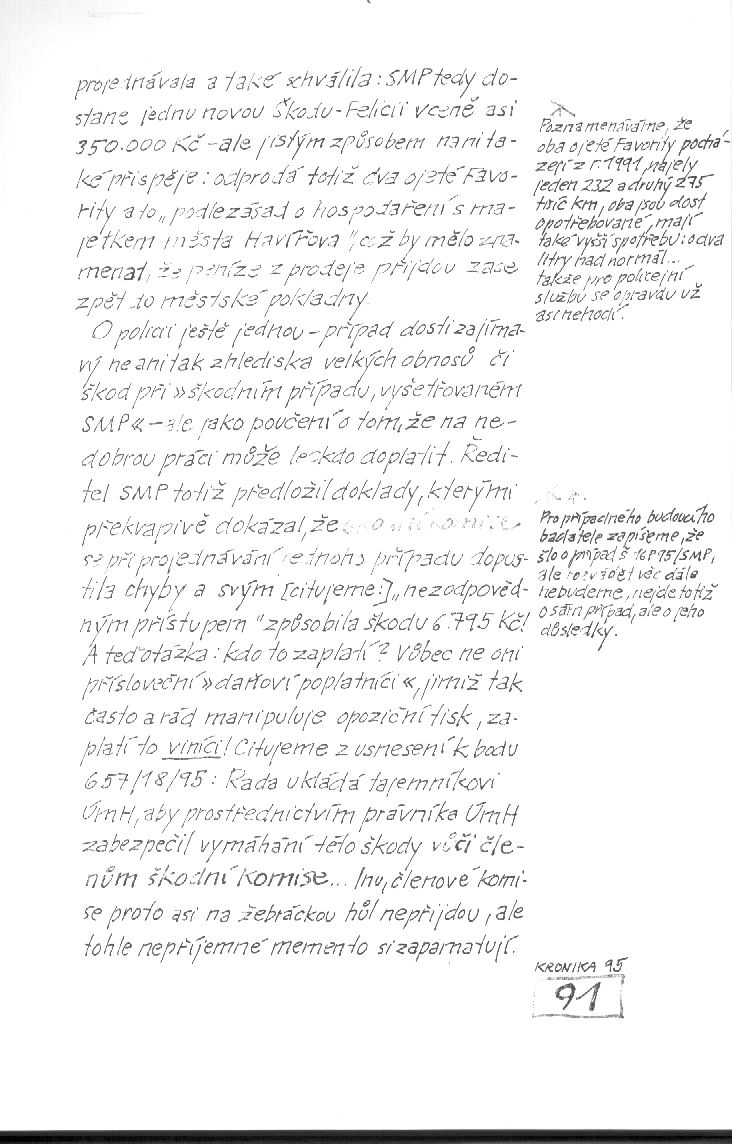 projednávala a také schválila: SMP tedy do-
stane jednu novou Škodu-Felicii v ceně asi
350.000 Kč – ale jistým způsobem na ni ta-
ké přispěje: odprodá totiž dva ojeté Favo-
rity a to „podle zásad o hospodaření s ma-
jetkem města Havířova", což by mělo zna-
menat, že peníze z prodeje přijdou zase
zpět do městské pokladny.
O policii ještě jednou – případ dosti zajíma-
vý ne ani tak z hlediska velkých obnosů či
škod při »škodním případu, vyšetřovaném
SMP« – ale jako poučení o tom, že na ne-
dobrou práci může leckdo doplatit. Ředi-
tel SMP totiž předložil doklady, kterými
překvapivě dokázal, že škodní komise
se při projednávání jednoho případu dopus-
tila chyby a svým [citujeme:] „nezodpověd-
ným přístupem" způsobila škodu 6.795 Kč!
A teď otázka: kdo to zaplatí? Vůbec ne oni
přísloveční »daňoví poplatníci«, jimiž tak
často a rád manipuluje opoziční tisk, za-
platí to viníci! Citujeme z usnesení k bodu
657/18/95: Rada ukládá tajemníkovi
ÚmH, aby prostřednictvím právníka ÚmH
zabezpečil vymáhání této škody vůči čle-
nům škodní komise... Inu, členové komi-
se proto asi na žebráckou hůl nepřijdou, ale
tohle nepříjemné memento si zapamatují.
Poznamenáváme, že
oba ojeté Favority pochá-
zejí z r. 1991, najely
jeden 232 a druhý 275
tisíc km, oba jsou dost
opotřebované, mají
také vyšší spotřebu: o dva
litry nad normál...
takže pro policejní
službu se opravdu už
asi nehodí.
Pro případného budoucího
badatele zapišeme, že
šlo o případ š 16P95/SMP,
ale rozvádět věc dále
nebudeme, nejde totiž
o sám případ, ale o jeho
důsledky.
KRONIKA 95
91